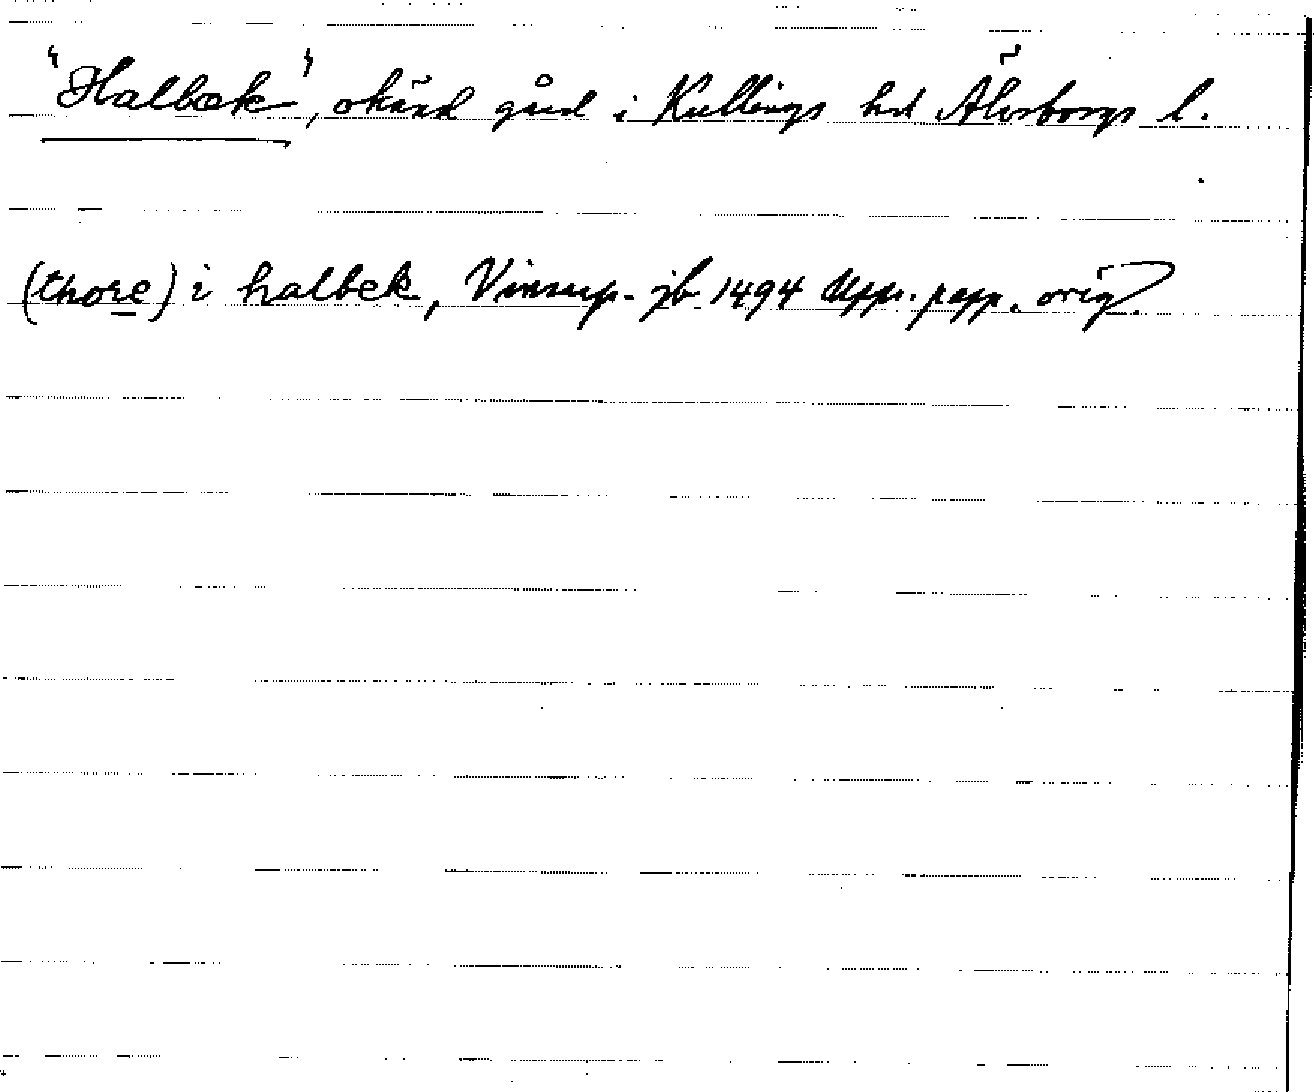 "Halbæk", okänd gård i Kullings hd Älvsborgs l.
(thore) i halbek, Vinsarp. jb 1494 Upps. papp. orig.